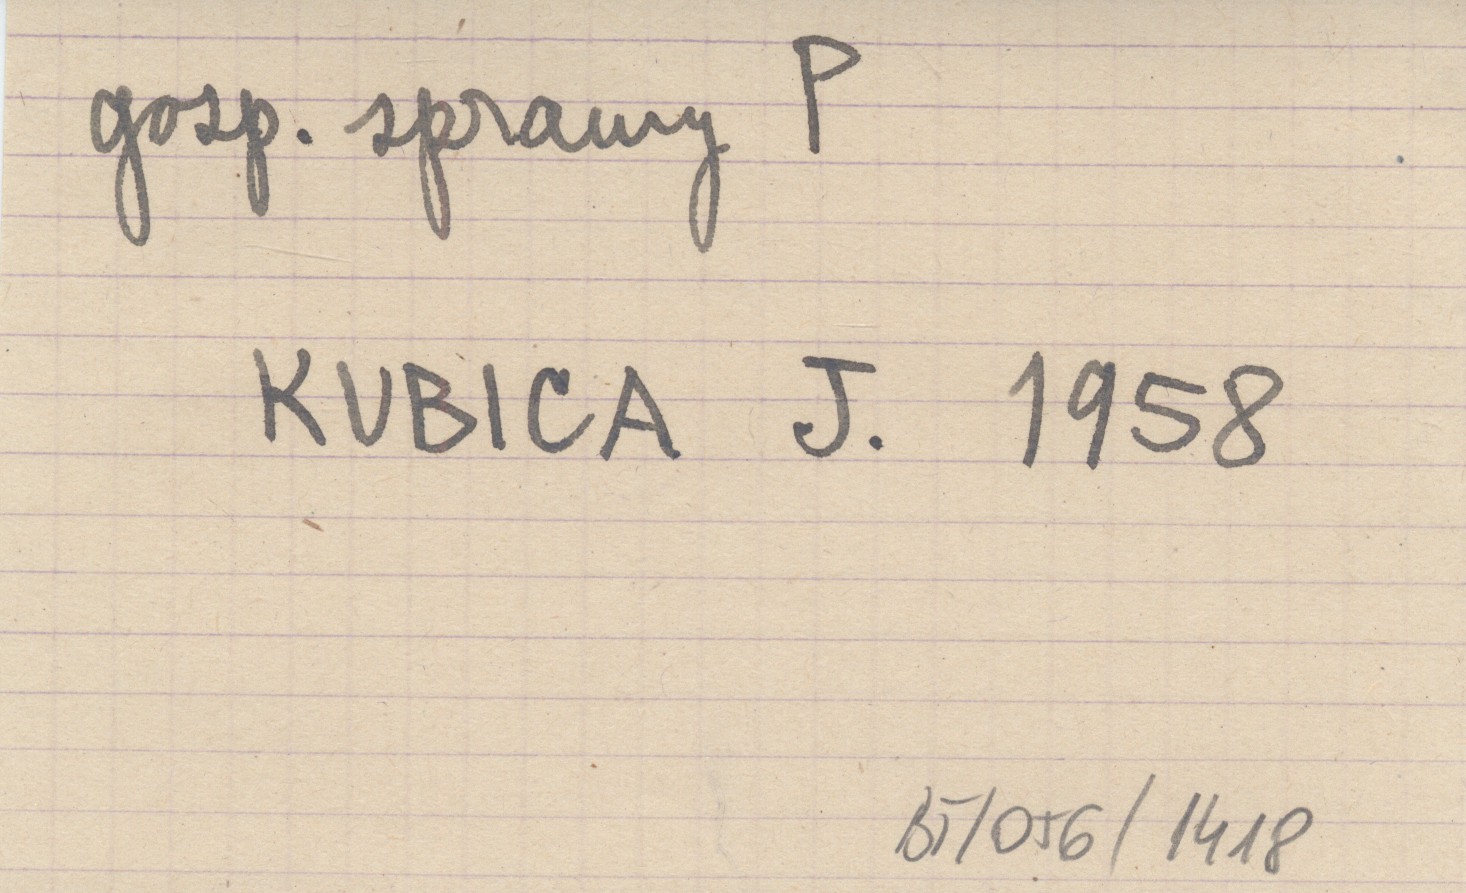 gosp. sprawy P
KUBICA J. 1958
BT/056/1418